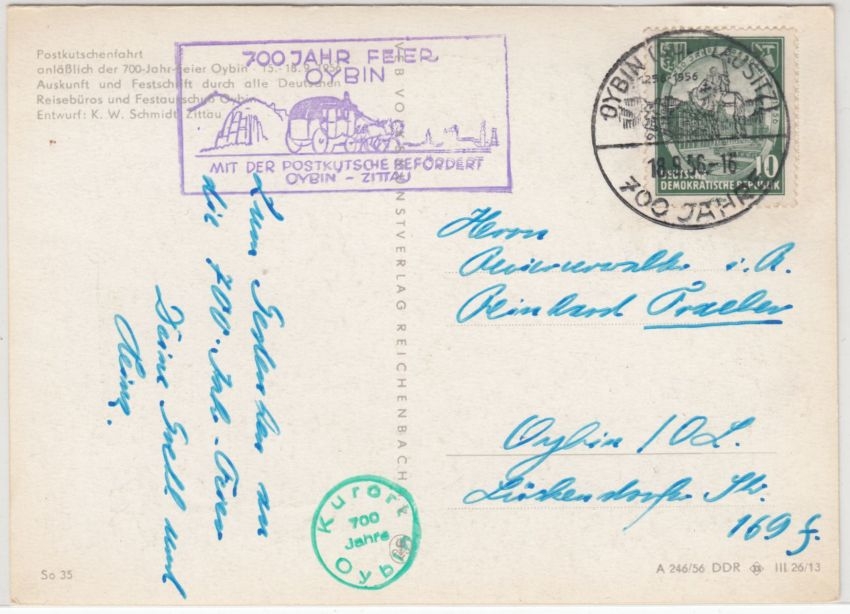 Postkutschenfahrt
anläßlich der 700-Jahr-Feier Oybin · 15.-18.9.1956
Auskunft und Festschrift durch alle Deutschen
Reisebüros und Festausschuß Oybin
Entwurf: K. W. Schmidt, Zittau
700 JAHR FEIER
OYBIN
MIT DER POSTKUTSCHE BEFÖRDERT
OYBIN - ZITTAU
OYBIN LAUSITZ
1256-1956
18.9.56-16
700 JAHRE
10
DEUTSCHE
DEMOKRATISCHE REPUBLIK
VEB VOLKSKUNSTVERLAG REICHENBACH
Zum Gedenken an
die 700-Jahr-Feier
Deine Gretl und
Heinz.
Herrn
i. R.
Reinhard
Oybin / O.L.
Lückendorfer Str.
169 f.
Kurort
700
Jahre
Oybin
So 35
A 246/56 DDR III 26/13